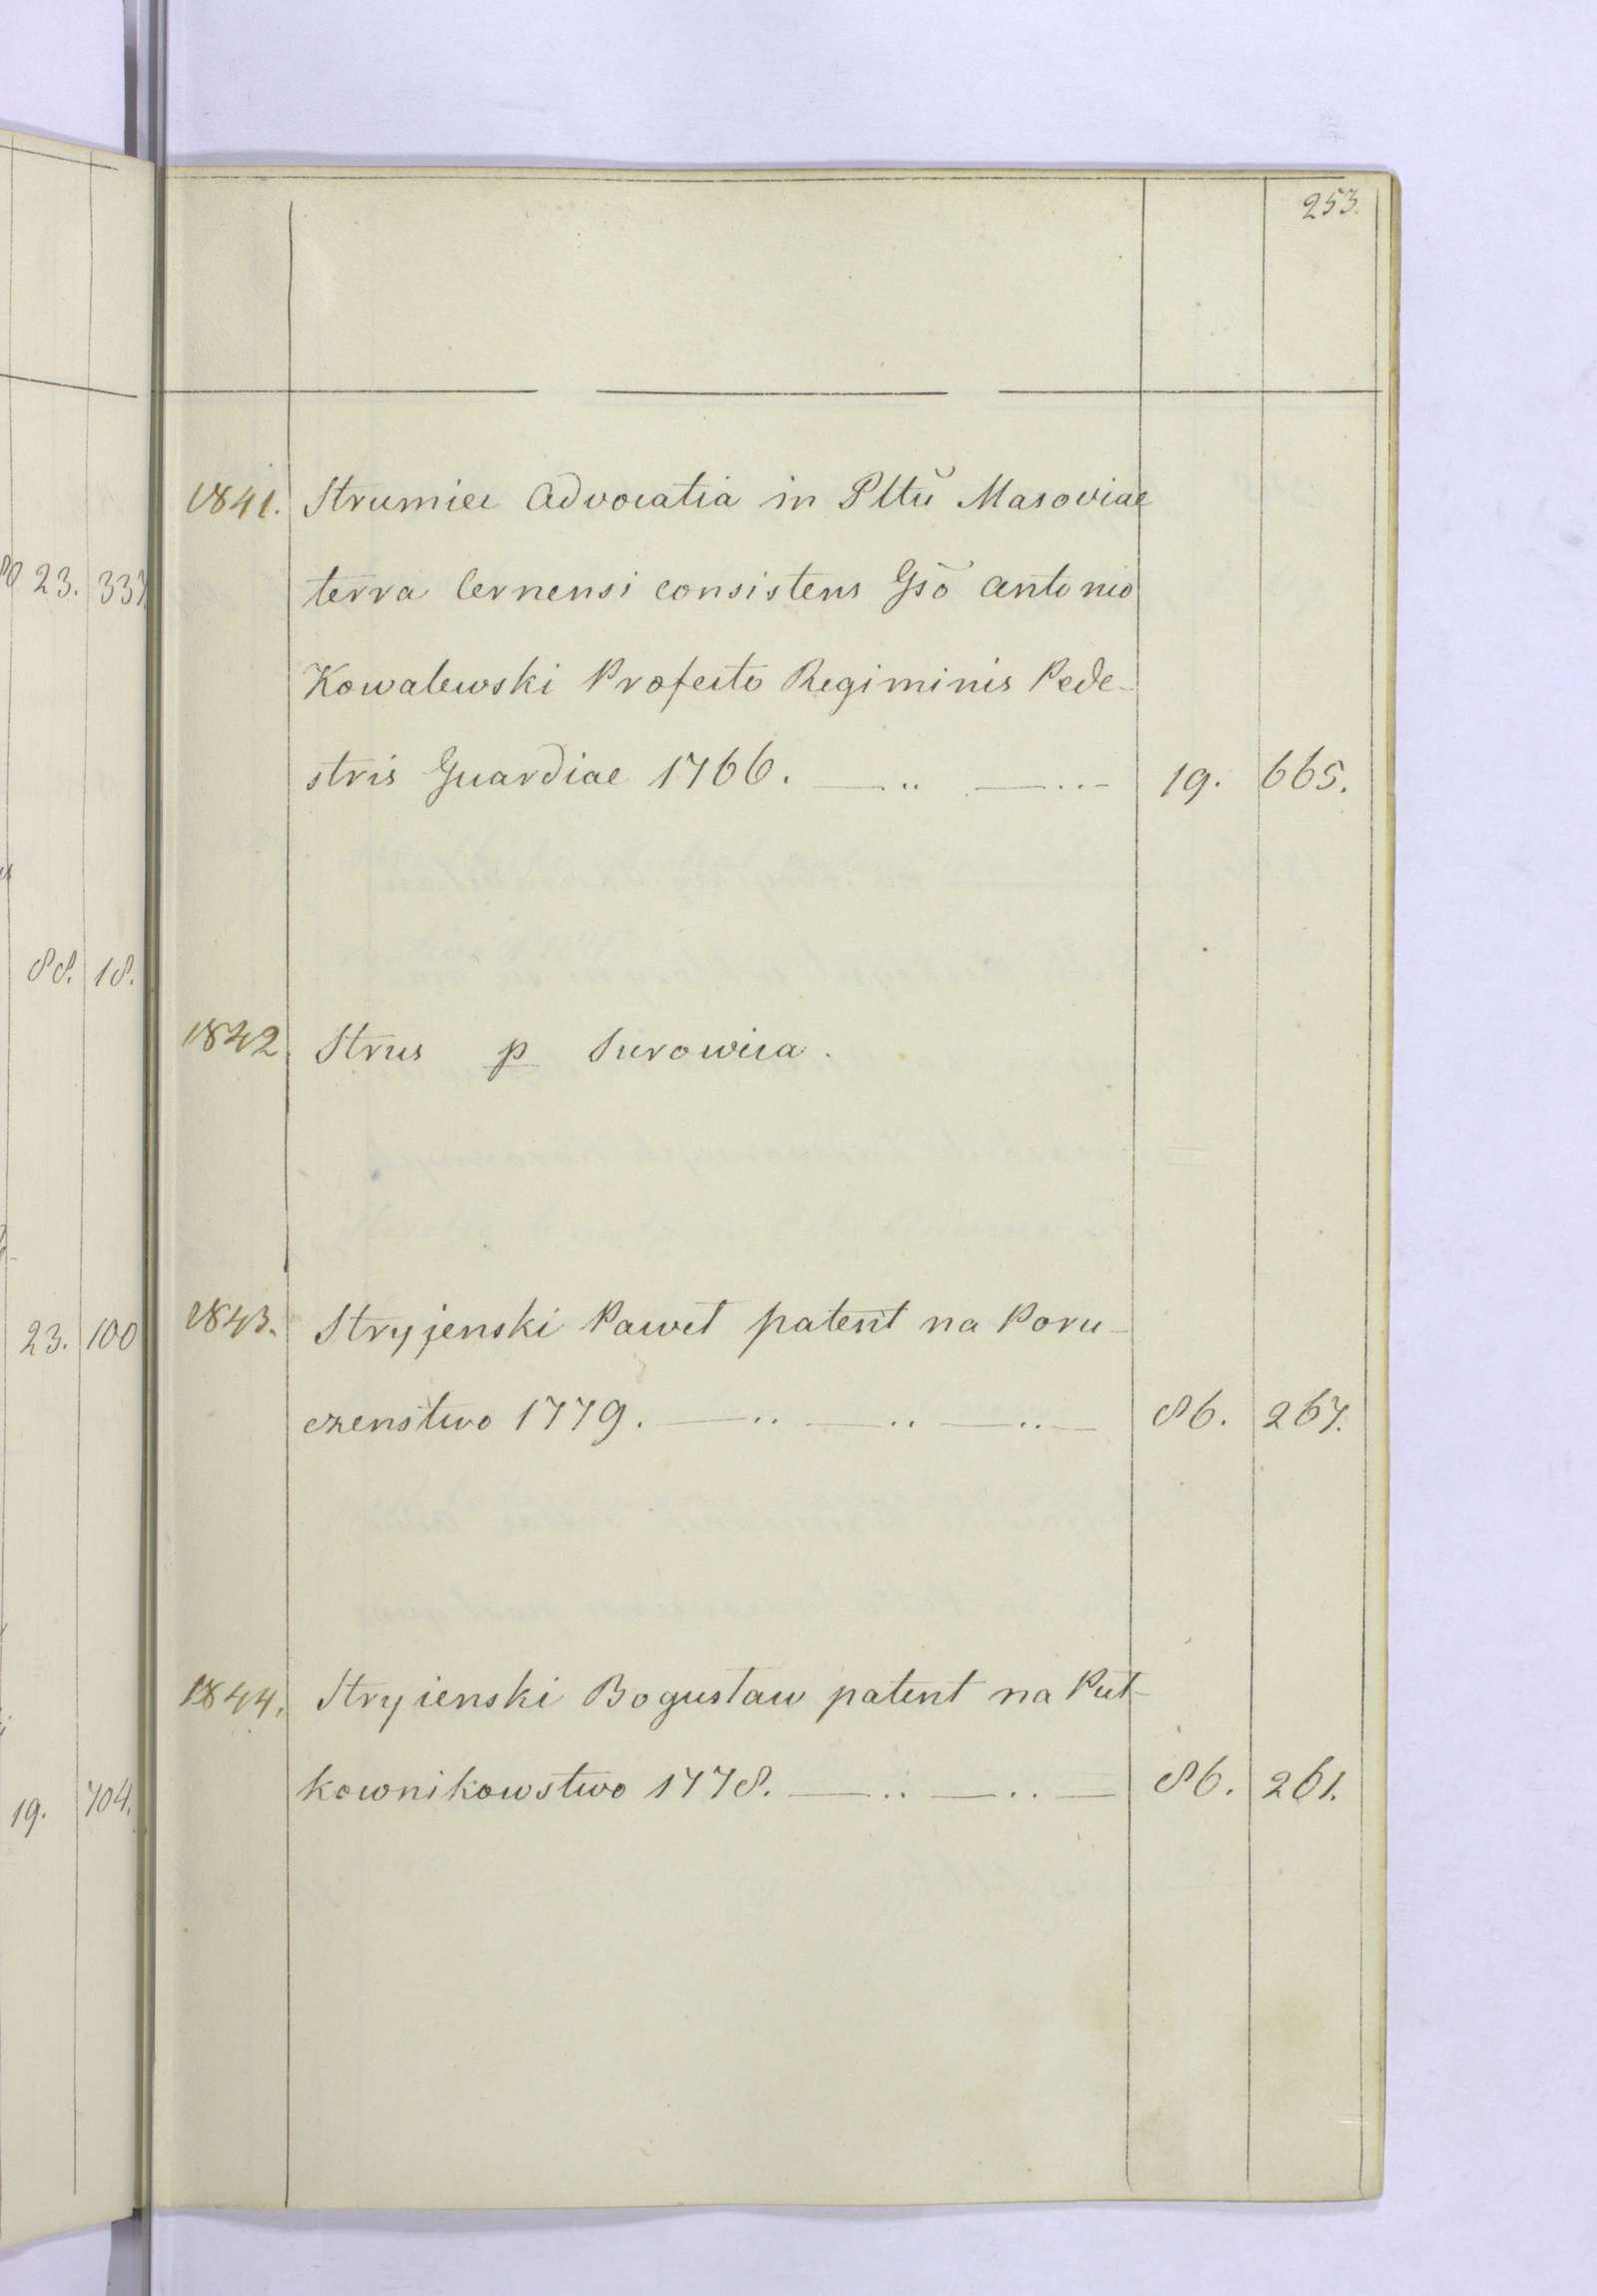 253.
1841. Strumiec Advocatia in Plttũ Masoviae
terra Cernensi consistens Gsõ Antonio
Kowalewski Profecto Regiminis Pede-
stris Guardiae 1766. 19. 665.
1842. Strus p Surowica.
1843. Stryjenski Paweł patent na Poru-
czenstwo 1779. 86. 267.
1844. Stryienski Bogusław patent na Puł-
kownikowstwo 1778. 86. 261.
23. 337.
88. 18.
23. 100
19. 704.